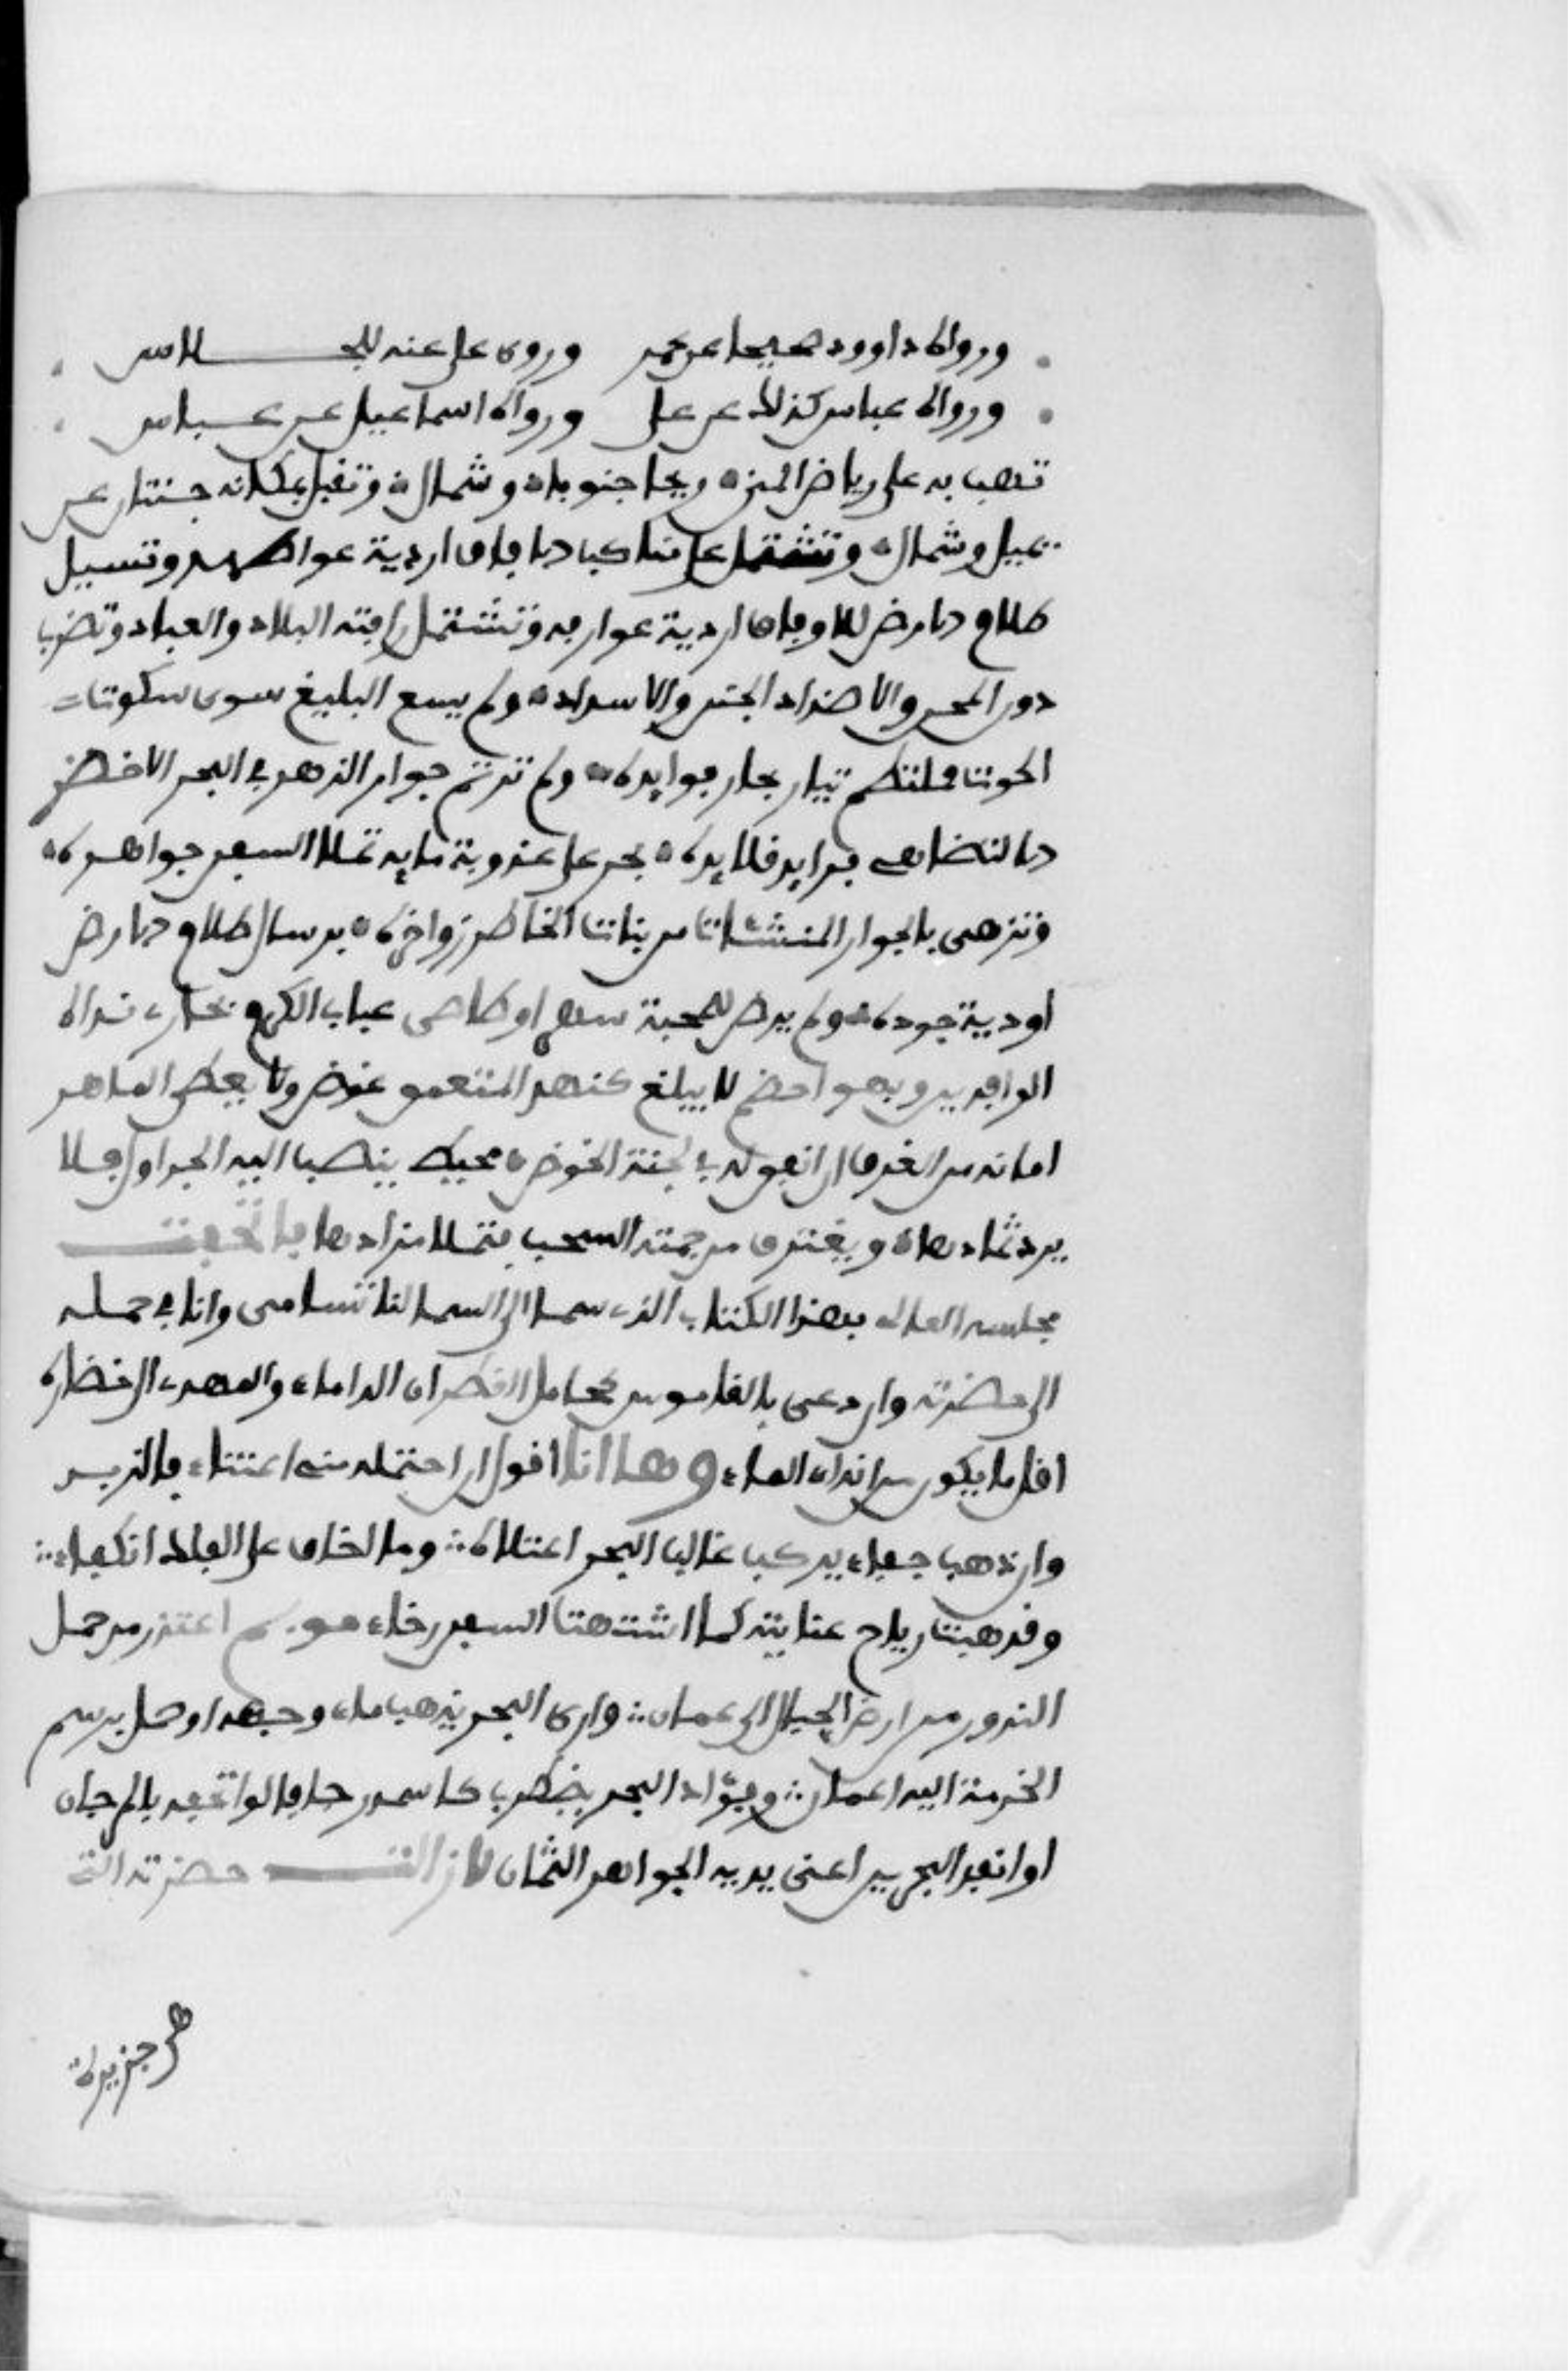 ورواه داوود صحيحا عن عمر وروى علي عنه للجلاس
ورواه عباس كذلك عن علي ورواه اسماعيل عن عباس
تهب به على رياض المنى ريحا جنوب وشمال وتقيل بمكانه جنتان عن
يمين وشمال وتشتمل على مناكب الافاق اردية عواطفه وتسيل
طلاع الارض للاوفاق اودية عوارفه وتشتمل رافته البلاد والعباد وتضرب
دون المحن والاضداد الجنن والاسداد ولم يسع البليغ سوى سكوت
الحوت بملتطم تيار بحار فوائده ولم ترتم جوار الزهر في البحر الاخضر
الا لتضاهي فرائد قلائده بحر على عذوبة مائه تملا السفن جواهره
وتزهى بالجوار المنشات من بنات الخاطر زواخره بر سال طلاع الارض
اودية جوده ولم يرض للمجتدي نهرا وطامي عباب الكرم يجاري نداه
الرافدين وبهرا خضم لا يبلغ كنهه المتعمق عوض ولا يعطي الماهر
امانه من الغرق ان اتفق له في لجته الخوض محيط ينصب اليه الجداول فلا
يرد ثمادها ويغترف من جمته السحب فتملا مزادها فاتحفت
مجلسه العالي بهذا الكتاب الذي سما الى السما لما تسامى وانا في حمله
الى حضرته وان دعي بالقاموس كحامل القطر الى الداماء والمهدي الى خضارة
اقل ما يكون من انداء الماء وها انا اقول ان احتمله مني اعتناء فالزبد
وان ذهب جفاء يركب غارب البحر اعتلاء وما اخاف على الفلك انكفاء
وقد هبت رياح عنايته كما اشتهت السفن رخاء اعتذر من حمل
الدر من ارض الجبال الى عمان وارى البحر يذهب ماء وجهه لو حمل برسم
الخدمة اليه الجمان وفؤاد البحر يضطرب كاسمه رجافا لو اتحفه بالمرجان
او انفذ البحرين اعني يديه الجواهر الثمان لا زالت حضرته التي
هي جزيرة